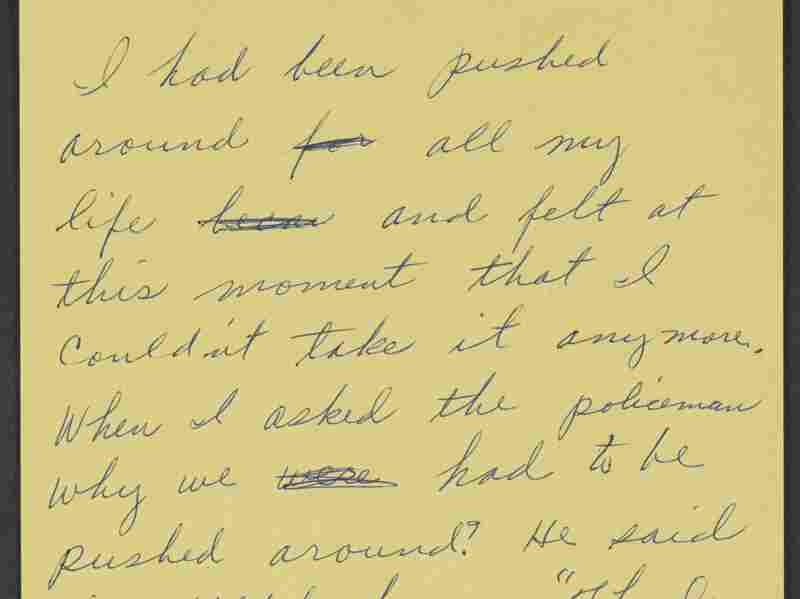 I had been pushed
around for all my
life been and felt at
this moment that I
couldn't take it anymore.
When I asked the policeman
why we were had to be
pushed around? He said